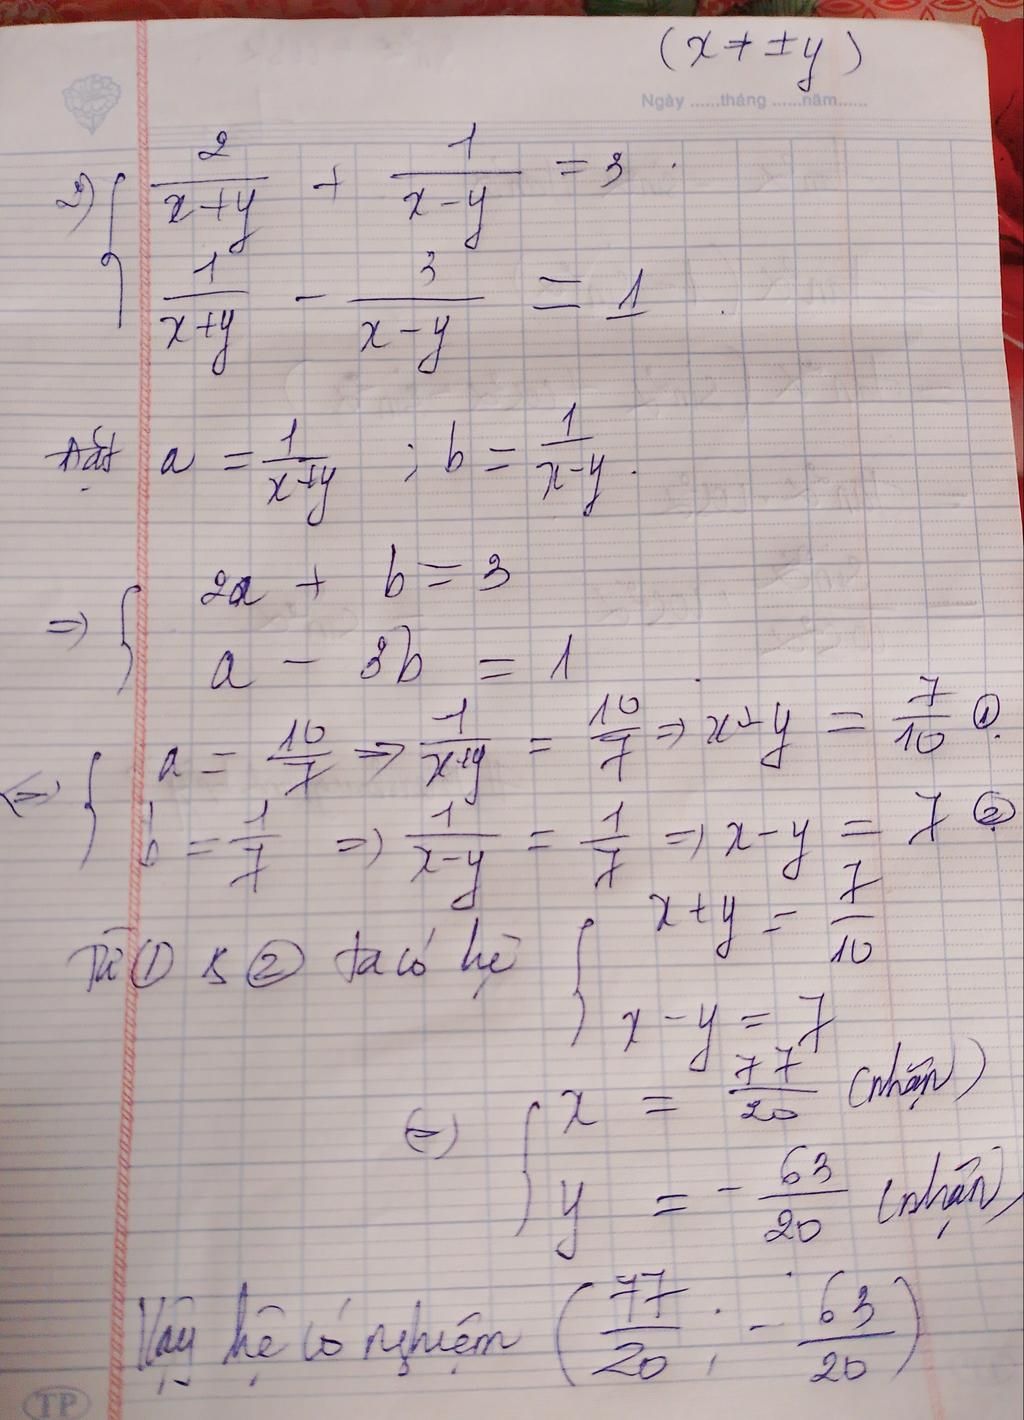 (x ≠ ±y)
Ngày ......tháng ......năm......
2) { 2/(x+y) + 1/(x-y) = 3
1/(x+y) - 3/(x-y) = 1
Đặt a = 1/(x+y) ; b = 1/(x-y).
=> { 2a + b = 3
a - 3b = 1
<=> { a = 10/7 => 1/(x+y) = 10/7 => x+y = 7/10 ①
b = 1/7 => 1/(x-y) = 1/7 => x-y = 7 ②
Từ ① & ② ta có hệ { x+y = 7/10
x-y = 7
<=> { x = 77/20 (nhận)
y = -63/20 (nhận)
Vậy hệ có nghiệm (77/20 ; -63/20)
TP